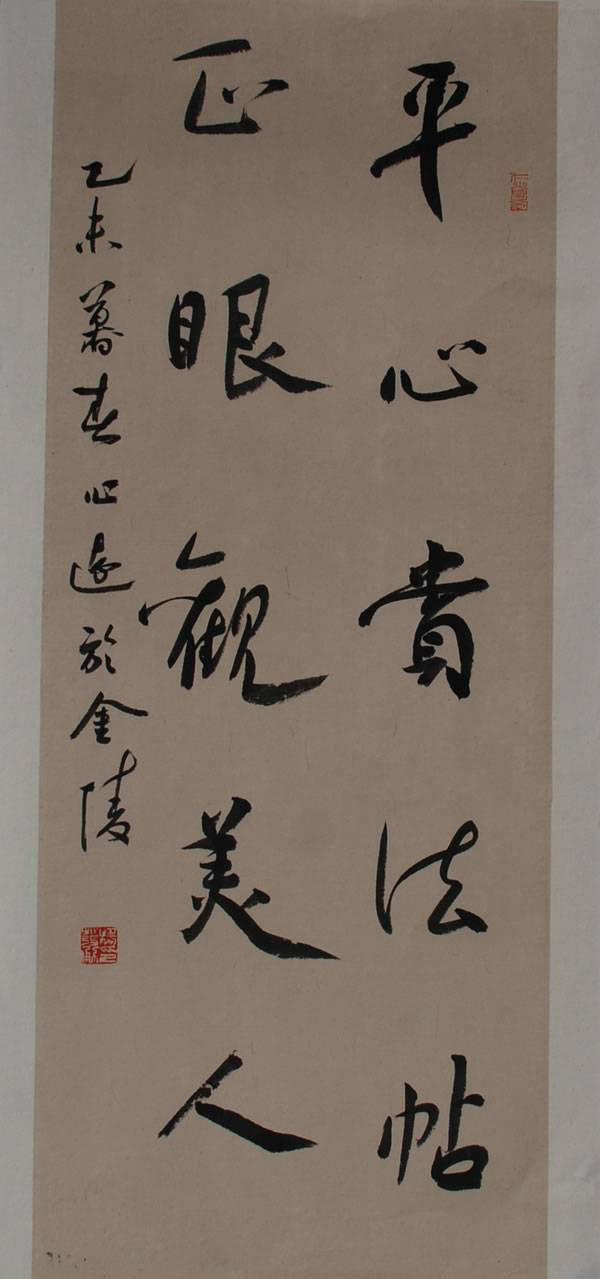 平心賞法帖
正眼觀美人
乙未暮春心遠於金陵